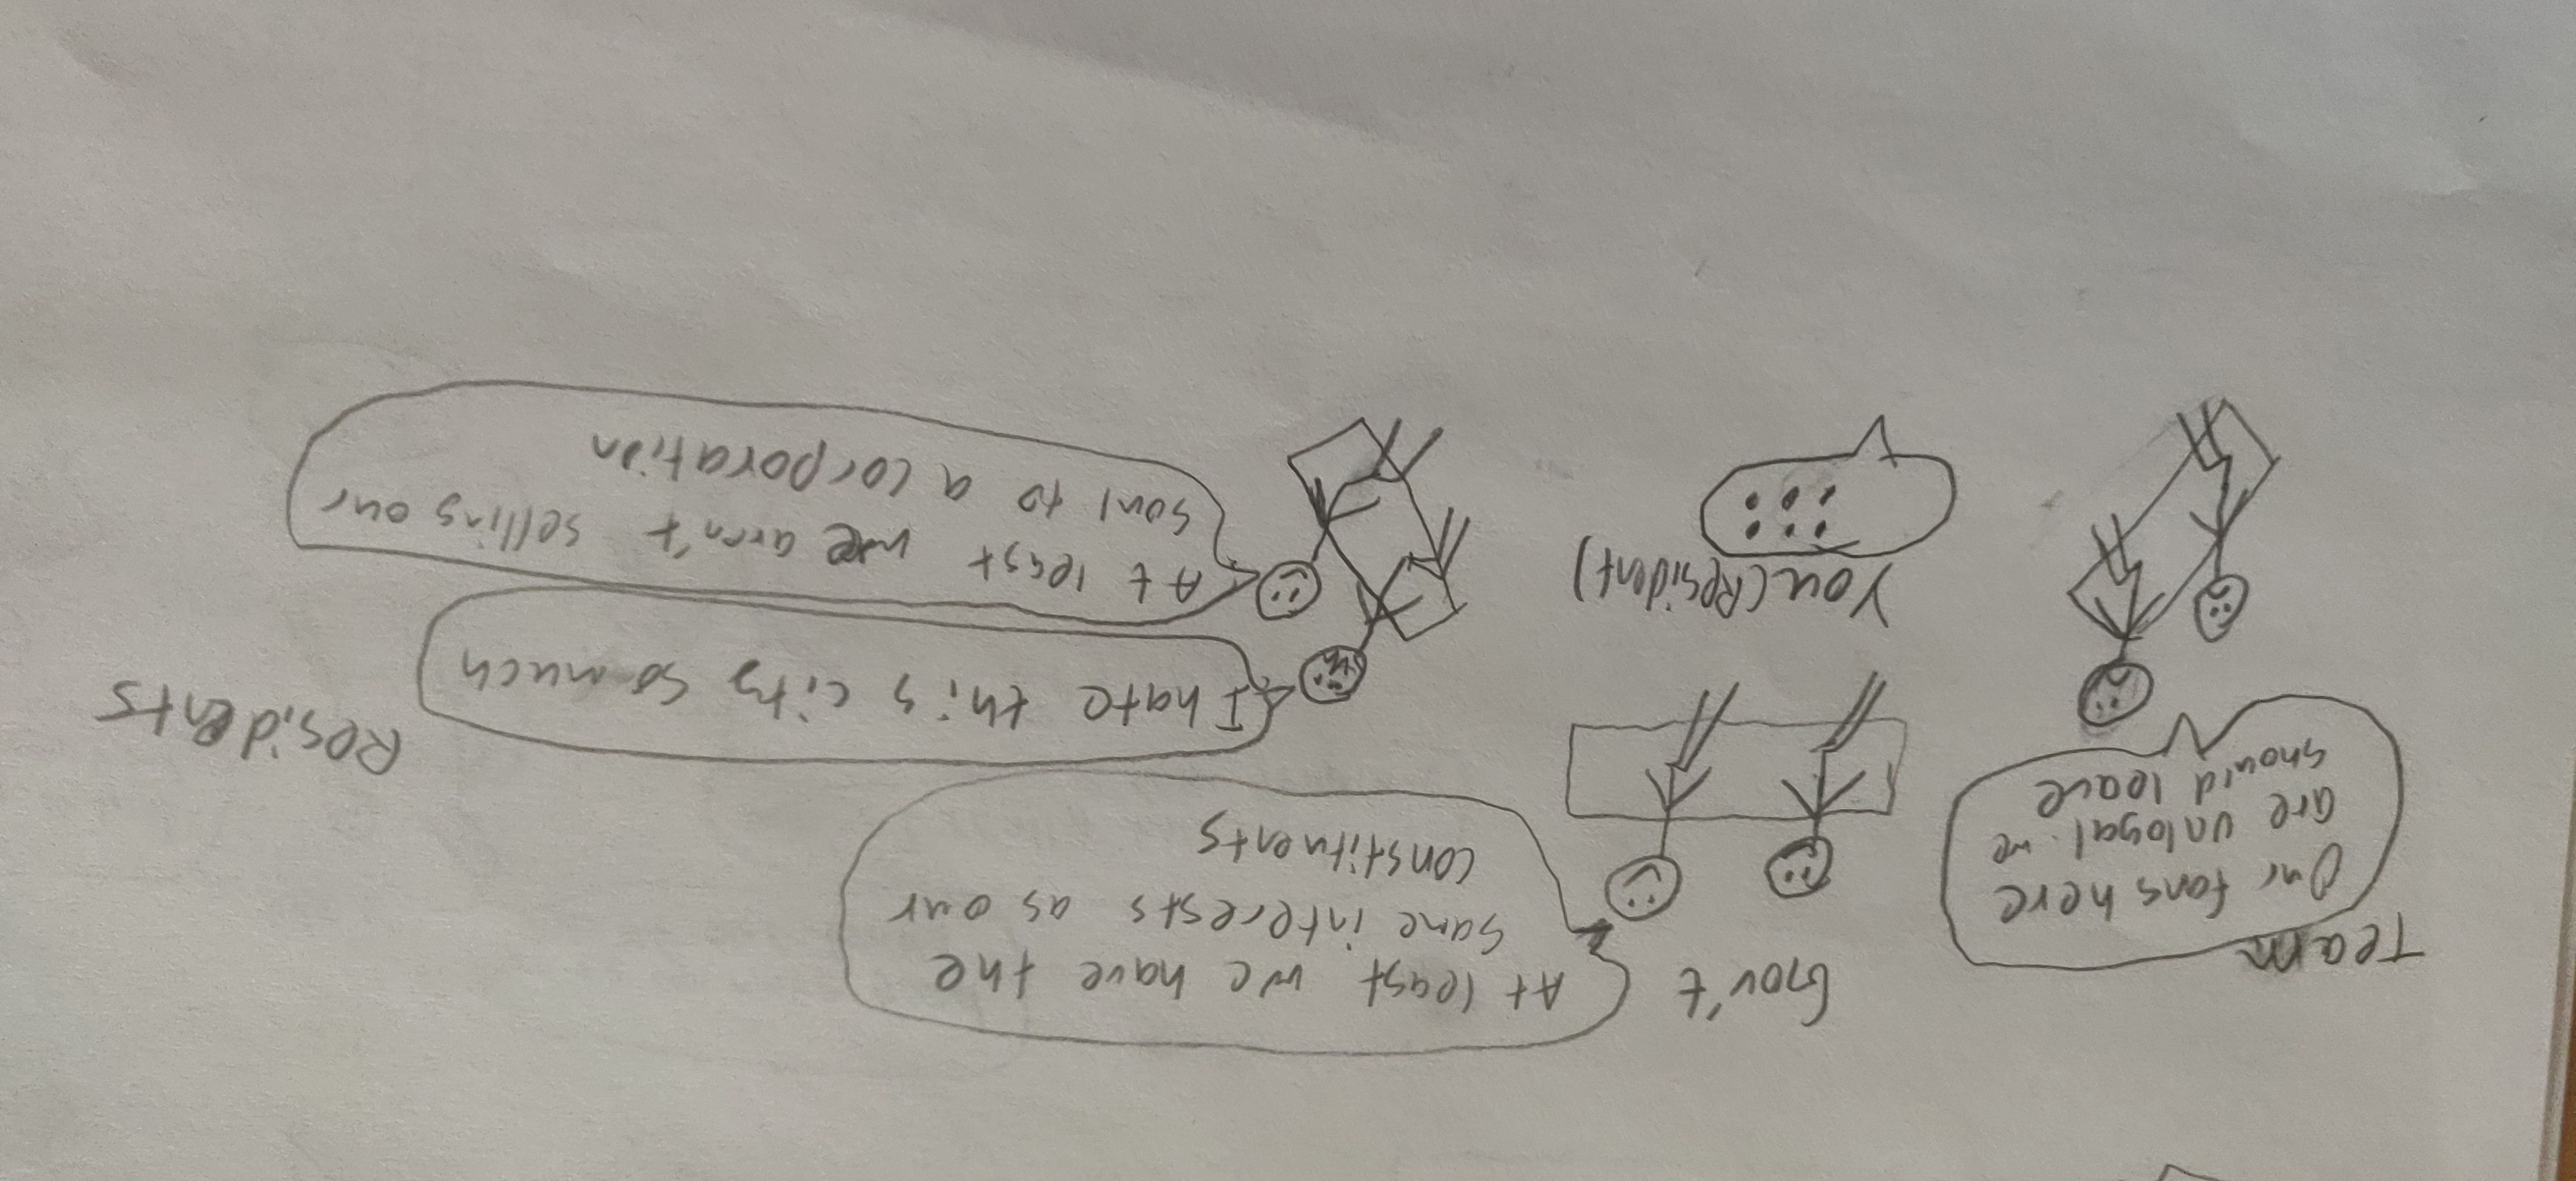 Team
Our fans here
are unloyal. we
should leave
Gov't
At least we have the
same interests as our
constituents
You (Resident)
Residents
I hate this city so much
At least we aren't selling our
soul to a corporation